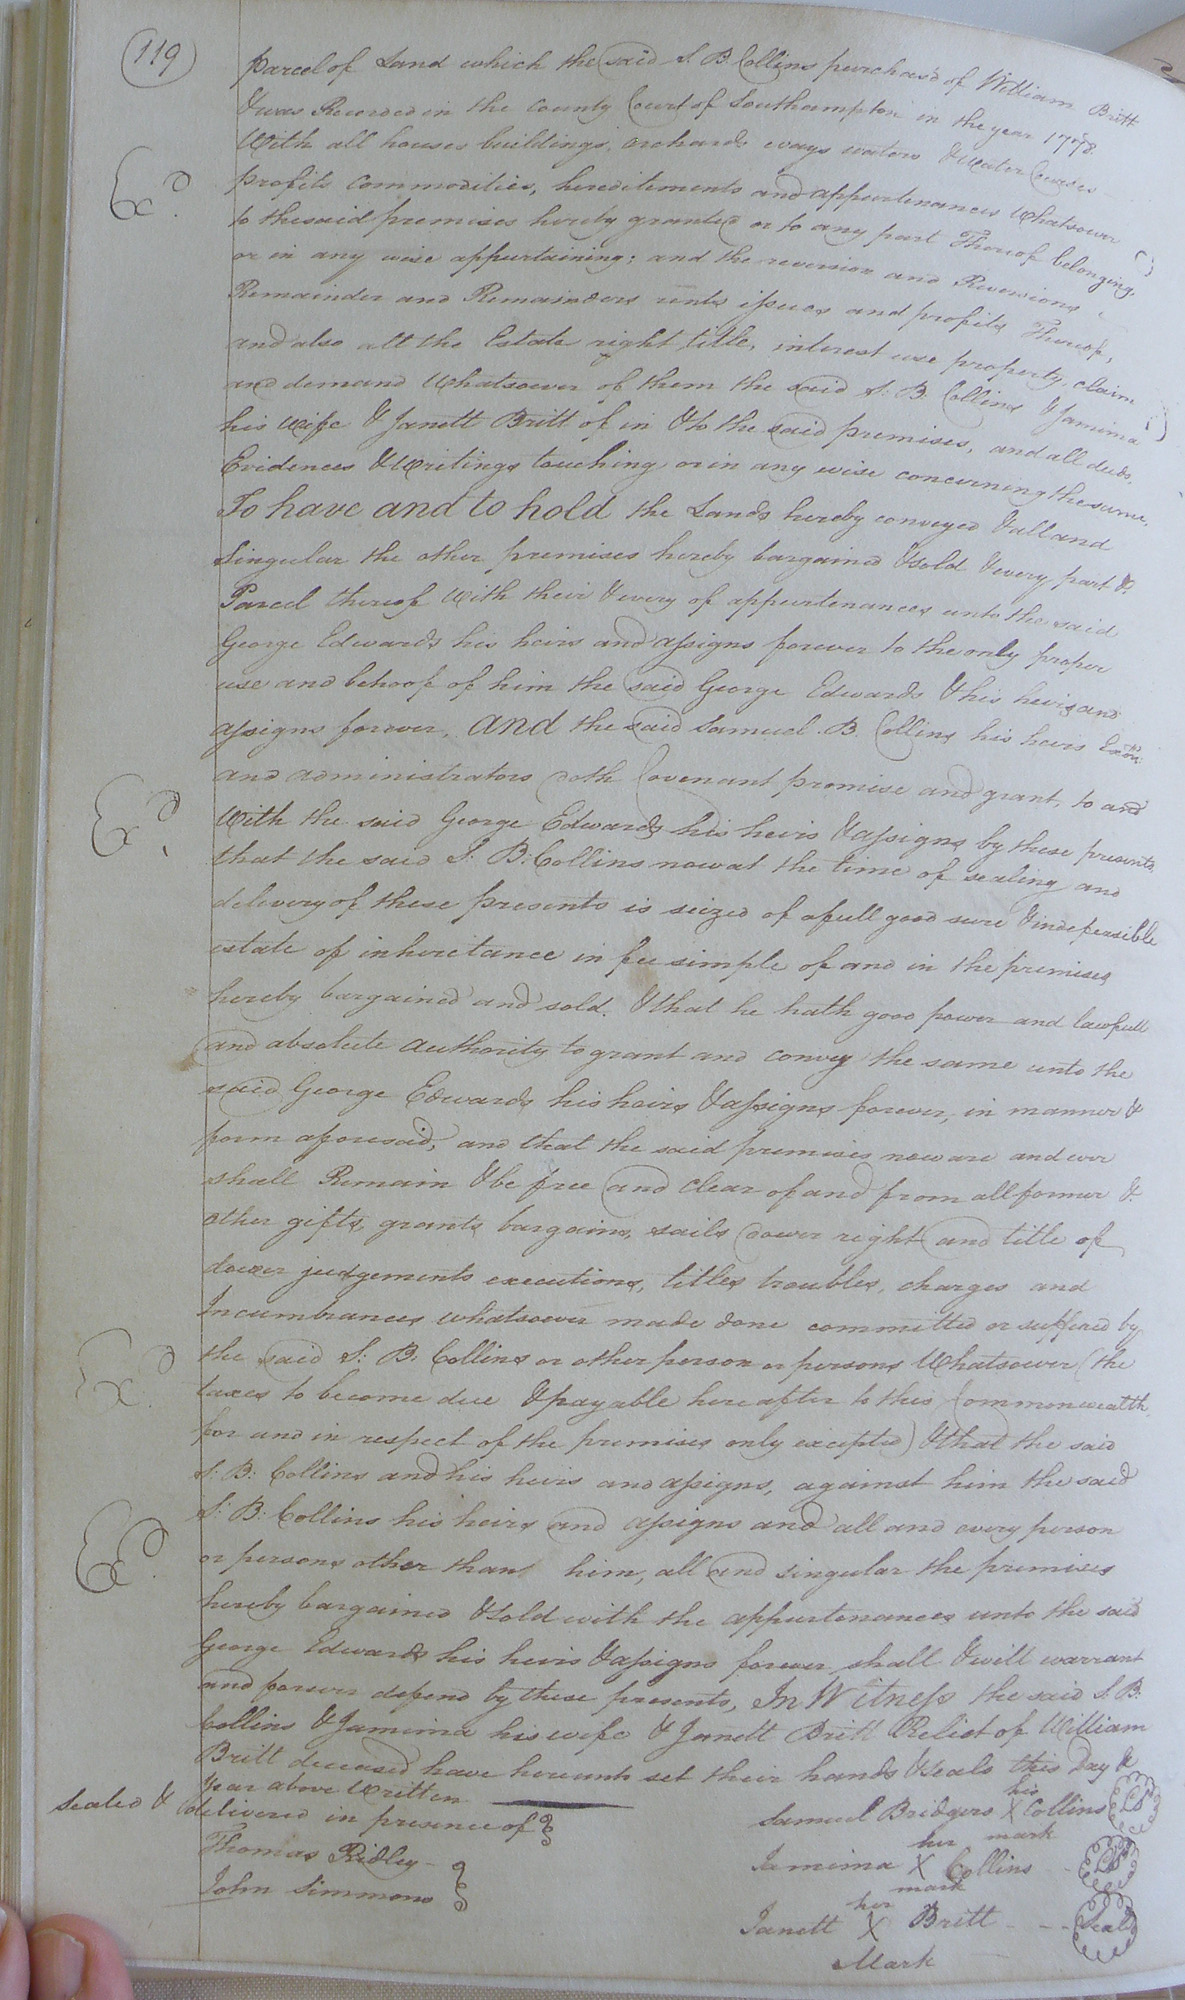 119
parcel of Land which the said S. B. Collins purchas'd of William Britt
& was Recorded in the County Court of Southampton in the year 1778.
With all houses buildings, orchards ways waters & Water Courses
profits commodities, hereditements and appurtenances Whatsoever
to the said premises hereby granted or to any part Thereof belonging,
or in any wise appurtaining; and the reversion and Reversions
Remainder and Remainders rents issues and profits Thereof,
and also all the Estate right title, interest use property, claim
and demand Whatsoever of them the said S: B. Collins & Jamima
his Wife & Janett Britt of in & to the said premises, and all deeds,
Evidences & Writings touching or in any wise concerning the same,
To have and to hold the Lands hereby conveyed & all and
Singular the other premises hereby bargained & sold & every part &
Parcel thereof With their & every of appurtenances unto the said
George Edwards his heirs and assigns forever to the only proper
use and behoof of him the said George Edwards & his heirs and
assigns forever, and the said Samuel B. Collins his heirs Exors
and administrators doth Covenant promise and grant, to and
With the said George Edwards his heirs & assigns by these presents,
that the said S: B: Collins now at the time of sealing and
delivery of these presents is seized of a full good sure & indefeasible
estate of inheritance in fee simple of and in the premises
hereby bargained and sold. & that he hath good power and lawfull
and absolute authority to grant and convey the same unto the
said George Edwards his heirs & assigns forever, in manner &
form aforesaid, and that the said premises now are and ever
shall Remain & be free and clear of and from all former &
other gifts, grants, bargains, sails dower right and title of
dower judgements executions, titles troubles, charges and
Incumbrances whatsoever made done committed or suffered by
the said S: B: Collins or other person or persons Whatsoever (the
taxes to become due & payable hereafter to this Commonwealth,
for and in respect of the premises only excepted) & that the said
S: B: Collins and his heirs and assigns, against him the said
S: B: Collins his heirs and assigns and all and every person
or persons other than him, all and singular the premises
hereby bargained & sold with the appurtenances unto the said
George Edwards his heirs & assigns forever shall & will warrant
and forever defend by these presents, In Witness the said S. B:
Collins & Jamima his wife & Janett Britt Relict of William
Britt deceased have hereunto set their hands & seals this Day &
Year above Written
Sealed & delivered in presence of
Thomas Ridley
John Simmons
his
Samuel Bridgers X Collins LS
mark
her
Jamima X Collins LS
mark
her
Janett X Britt Seal
Mark